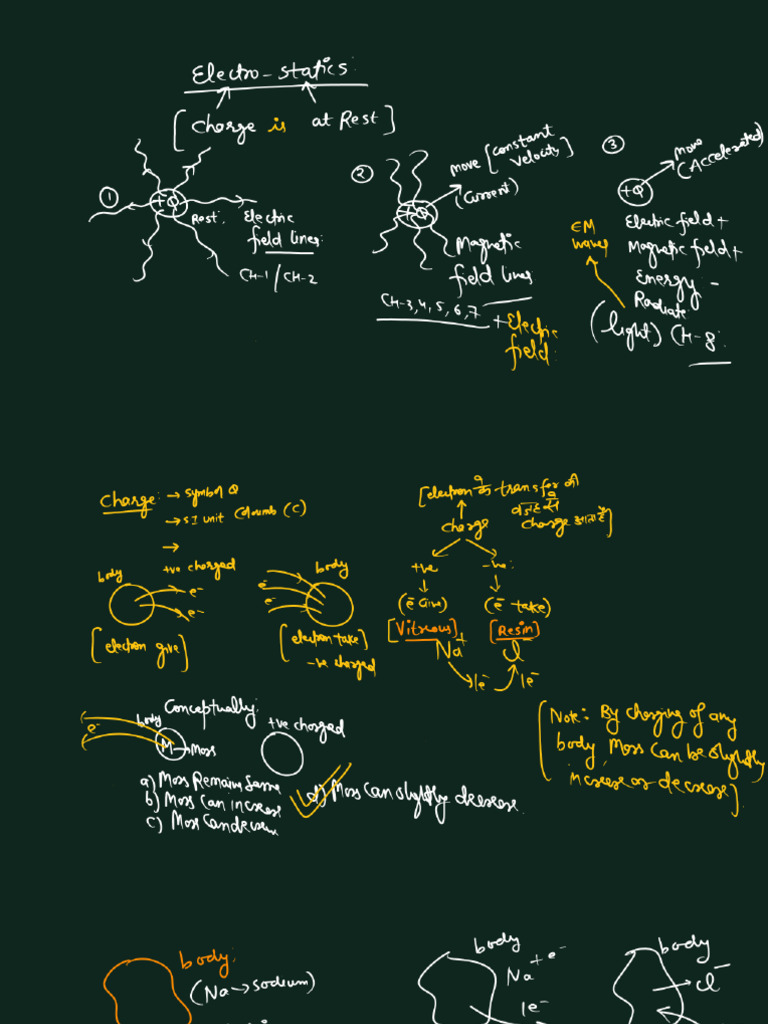 Electro-statics:
[Charge is at Rest]
①
+Q
Rest.
Electric
field lines:
CH-1/CH-2
②
+Q
move [constant
velocity]
(Current)
Magnetic
field lines
CH-3,4,5,6,7
+Electric
field:
③
+Q
move
(Accelerated)
EM
waves
Electric field +
Magnetic field +
Energy -
Radiate
(light) CH-8:
Charge: → symbol Q
→ SI unit Coloumb (C)
→
+ve charged
body
e-
e-
[electron give]
body
e-
e-
[electron take]
-ve charged
[electron के transfer की
वजह से
charge आता है]
charge
+ve
-ve:
(e- Give)
(e- take)
[Vitreous]
[Resin]
Na+
Cl-
1e-
1e-
Conceptually:
e-
body
M → Mass
+ve charged
a) Mass Remains Same
b) Mass Can increase
c) Mass Can decrease
d) Mass Can slightly decrease.
[Note: By charging of any
body, Mass Can be slightly
increase or decrease].
body:
(Na → sodium)
body
Na + e-
1e-
body
Cl-